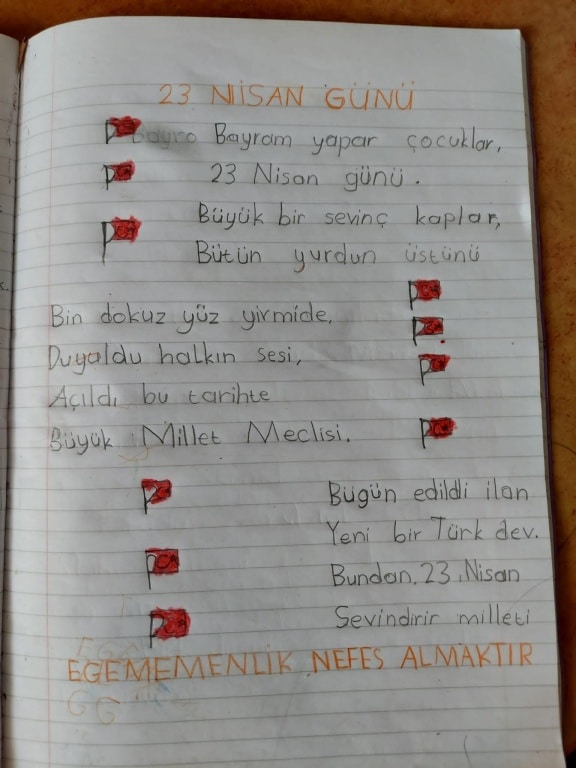 23 NİSAN GÜNÜ
Bayra Bayram yapar çocuklar,
23 Nisan günü.
Büyük bir sevinç kaplar,
Bütün yurdun üstünü
Bin dokuz yüz yirmide,
Duyoldu halkın sesi,
Açıldı bu tarihte
Büyük Millet Meclisi.
Bugün edildi ilan
Yeni bir Türk dev.
Bundan, 23 Nisan
Sevindirir milleti
EGEMEMENLİK NEFES ALMAKTIR